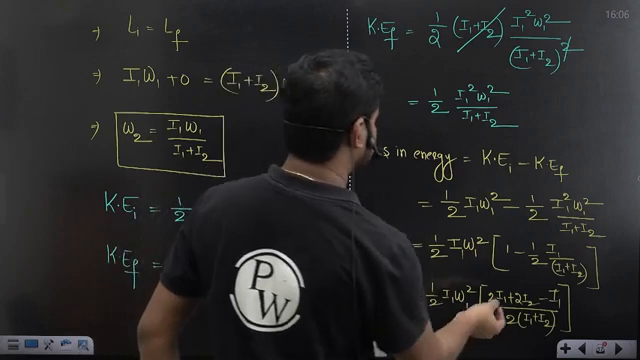 ⇒ L₁ = L_f
⇒ I₁W₁ + 0 = (I₁+I₂)
⇒ W₂ = I₁W₁ / (I₁+I₂)
K·Eᵢ = 1/2
K·E_f =
K·E_f = 1/2 (I₁+I₂) I₁²W₁² / (I₁+I₂)²
= 1/2 I₁²W₁² / (I₁+I₂)
s in energy = K·Eᵢ − K·E_f
= 1/2 I₁W₁² − 1/2 I₁²W₁² / (I₁+I₂)
= 1/2 I₁W₁² [1 − 1/2 I₁ / (I₁+I₂)]
1/2 I₁W₁² [2I₁+2I₂ − I₁ / 2(I₁+I₂)]
PW
16:06